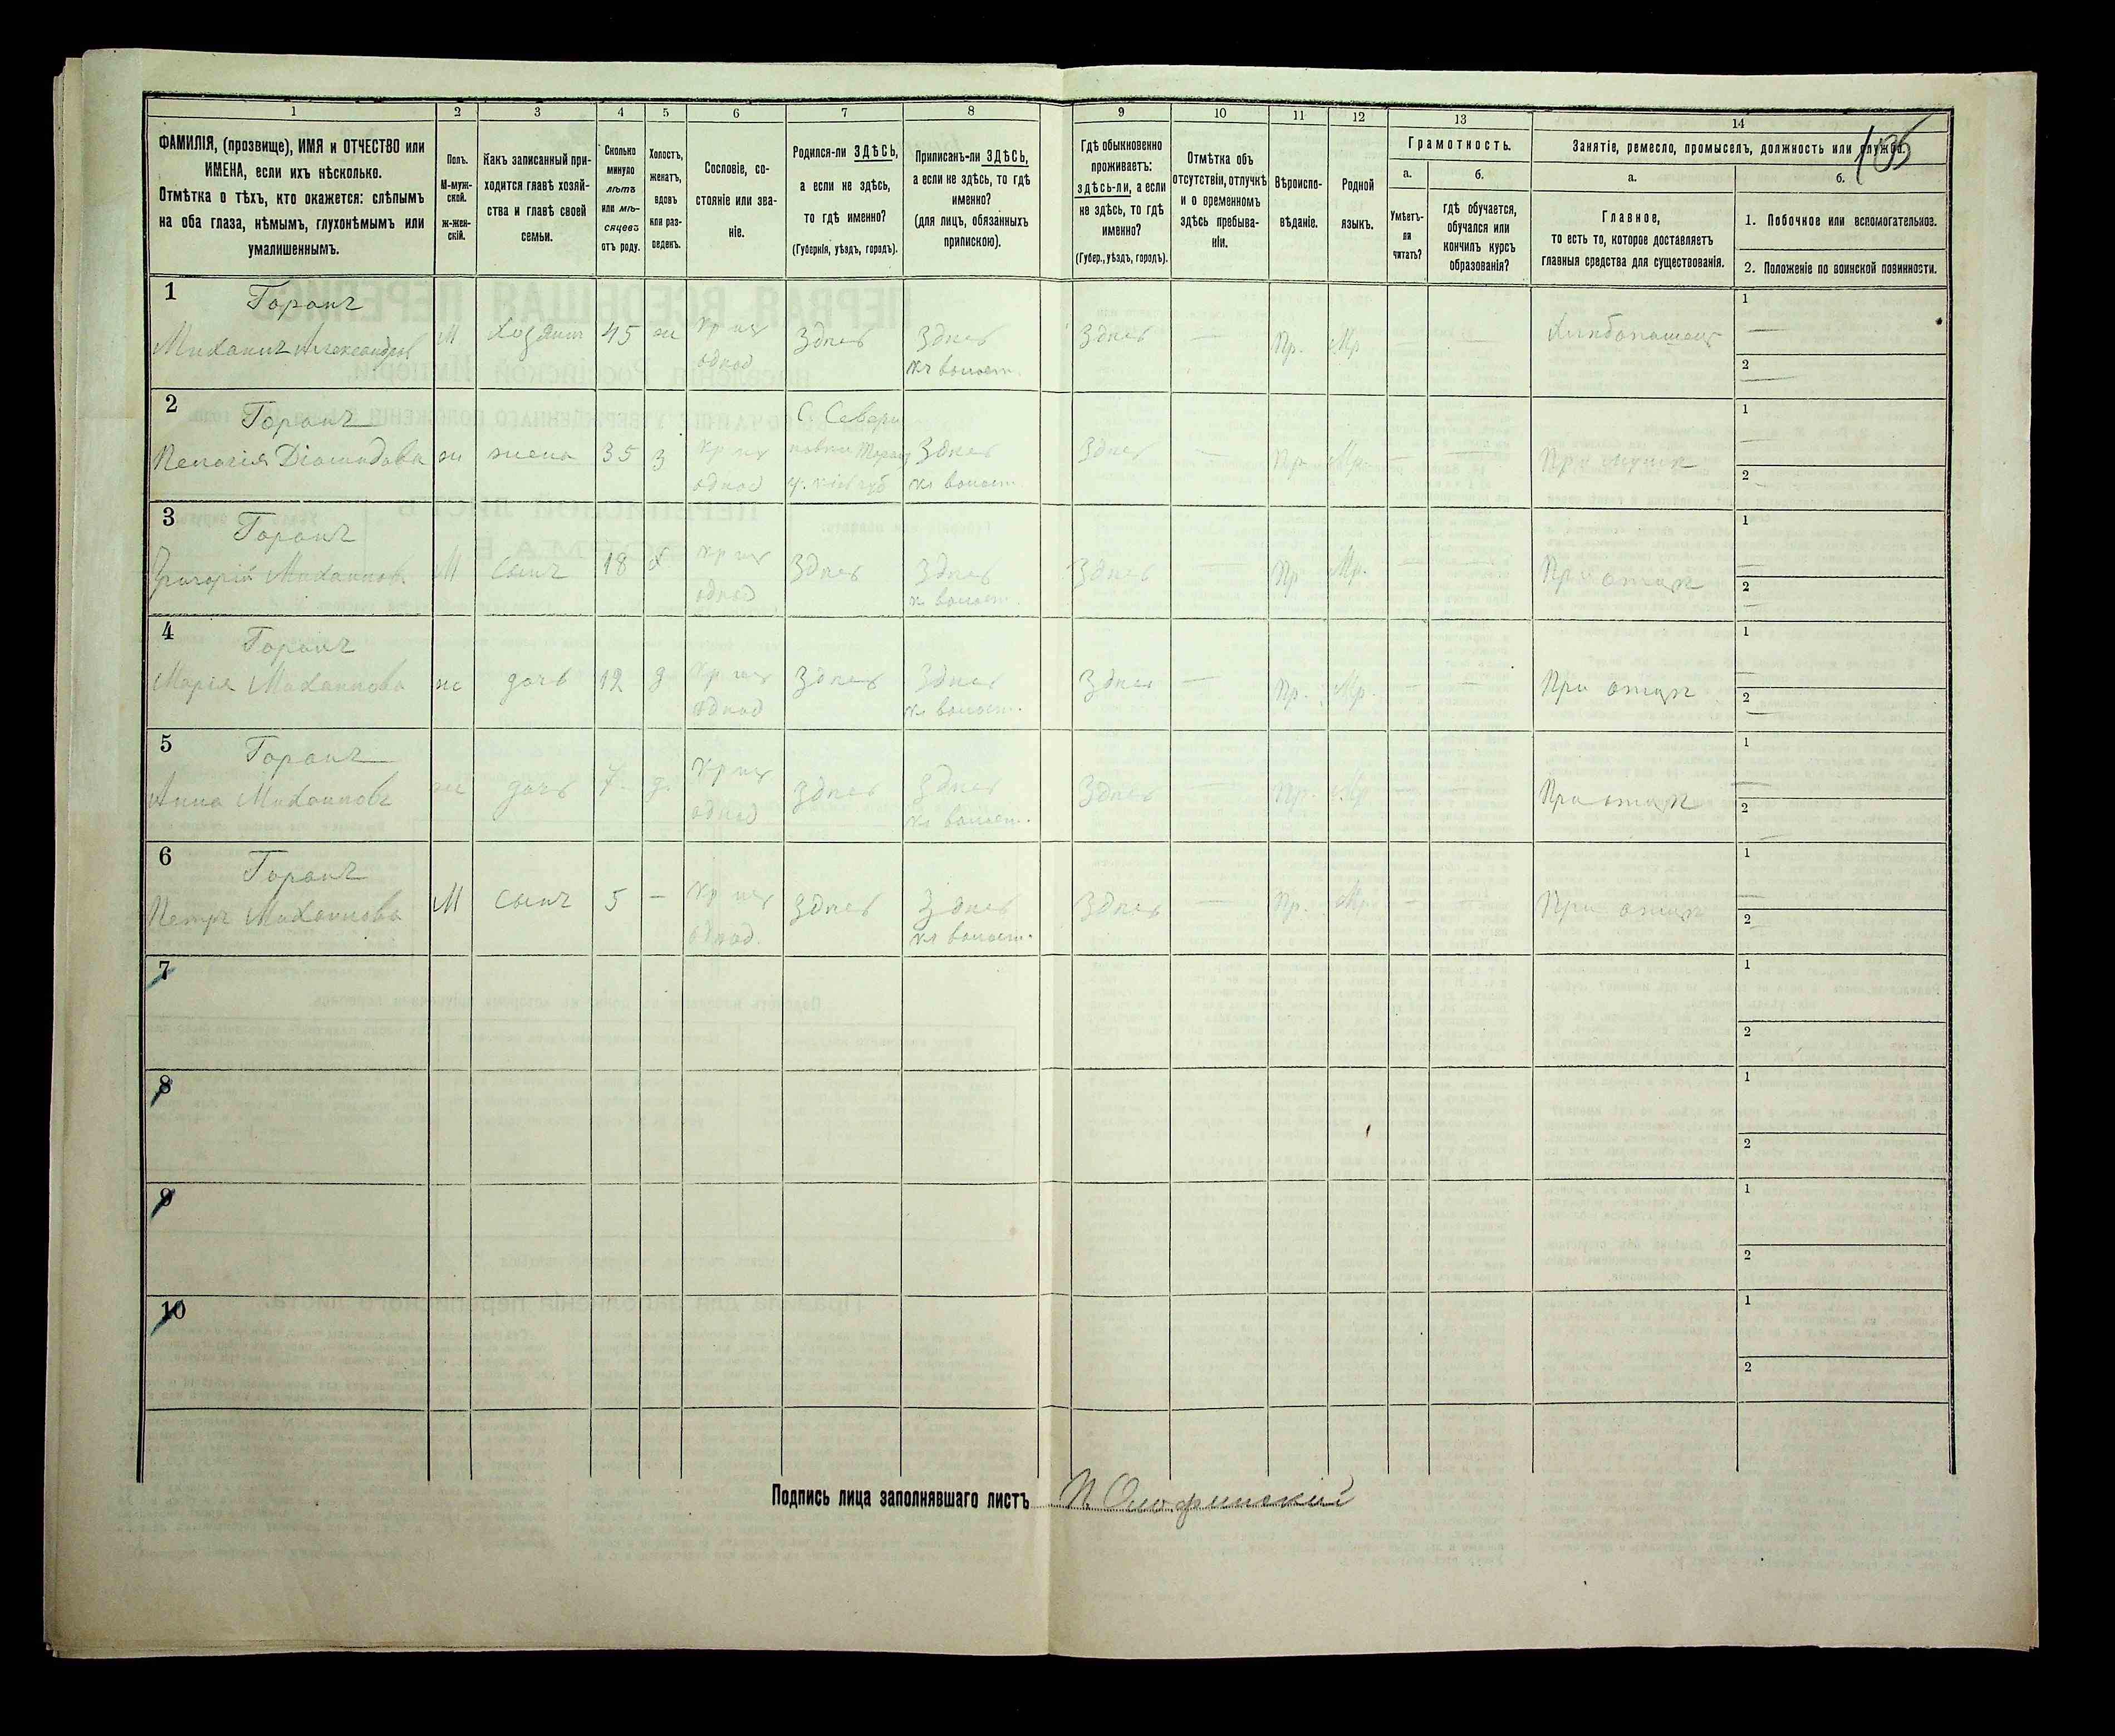 135
1 2 3 4 5 6 7 8 9 10 11 12 13 14
ФАМИЛІЯ, (прозвище), ИМЯ и ОТЧЕСТВО или
ИМЕНА, если ихъ нѣсколько.
Отмѣтка о тѣхъ, кто окажется: слѣпымъ
на оба глаза, нѣмымъ, глухонѣмымъ или
умалишеннымъ.
Полъ.
М-муж-
ской.
ж-жен-
скій.
Какъ записанный при-
ходится главѣ хозяй-
ства и главѣ своей
семьи.
Сколько
минуло
лѣтъ
или мѣ-
сяцевъ
отъ роду.
Холостъ,
женатъ,
вдовъ
или раз-
веденъ.
Сословіе, со-
стояніе или зва-
ніе.
Родился-ли ЗДѢСЬ,
а если не здѣсь,
то гдѣ именно?
(Губернія, уѣздъ, городъ).
Приписанъ-ли ЗДѢСЬ,
а если не здѣсь, то гдѣ
именно?
(для лицъ, обязанныхъ
припискою).
Гдѣ обыкновенно
проживаетъ:
здѣсь-ли, а если
не здѣсь, то гдѣ
именно?
(Губер., уѣздъ, городъ).
Отмѣтка объ
отсутствіи, отлучкѣ
и о временномъ
здѣсь пребыва-
ніи.
Вѣроиспо-
вѣданіе.
Родной
языкъ.
Грамотность.
а.
Умѣетъ-
ли
читать?
б.
гдѣ обучается,
обучался или
кончилъ курсъ
образованія?
Занятіе, ремесло, промыселъ, должность или служба.
а.
Главное,
то есть то, которое доставляетъ
главныя средства для существованія.
б.
1. Побочное или вспомогательное.
2. Положеніе по воинской повинности.
1 Горанъ
Михаилъ Александров М хозяинъ 45 ж Кр изъ Здѣсь Здѣсь Здѣсь — Пр. Мр — — Хлѣбопашецъ 1 —
однод къ волост. 2 —
2 Горанъ С. Севери
Пелагія Діомидова ж жена 35 з Кр изъ новки Таращ Здѣсь Здѣсь — Пр. Мр. — — При мужѣ 1 —
однод у. Кіев губ къ волост. 2 —
3 Горанъ
Григорій Михаилов. М сынъ 18 х Кр изъ Здѣсь Здѣсь Здѣсь — Пр Мр. — — При отцѣ 1 —
однод къ волост. 2 —
4 Горанъ
Марія Михаилова ж дочь 12 д Кр изъ Здѣсь Здѣсь Здѣсь — Пр. Мр. — — При отцѣ 1 —
однод къ волост. 2 —
5 Горанъ
Анна Михаилова ж дочь 7 д. Кр изъ Здѣсь Здѣсь Здѣсь — Пр. Мр. — — При отцѣ 1 —
однод къ волост. 2 —
6 Горанъ
Петръ Михаилова М сынъ 5 — Кр изъ Здѣсь Здѣсь Здѣсь — Пр. Мр. — — При отцѣ 1 —
однод. къ волост. 2 —
7 1
2
8 1
2
9 1
2
10 1
2
Подпись лица заполнявшаго листъ